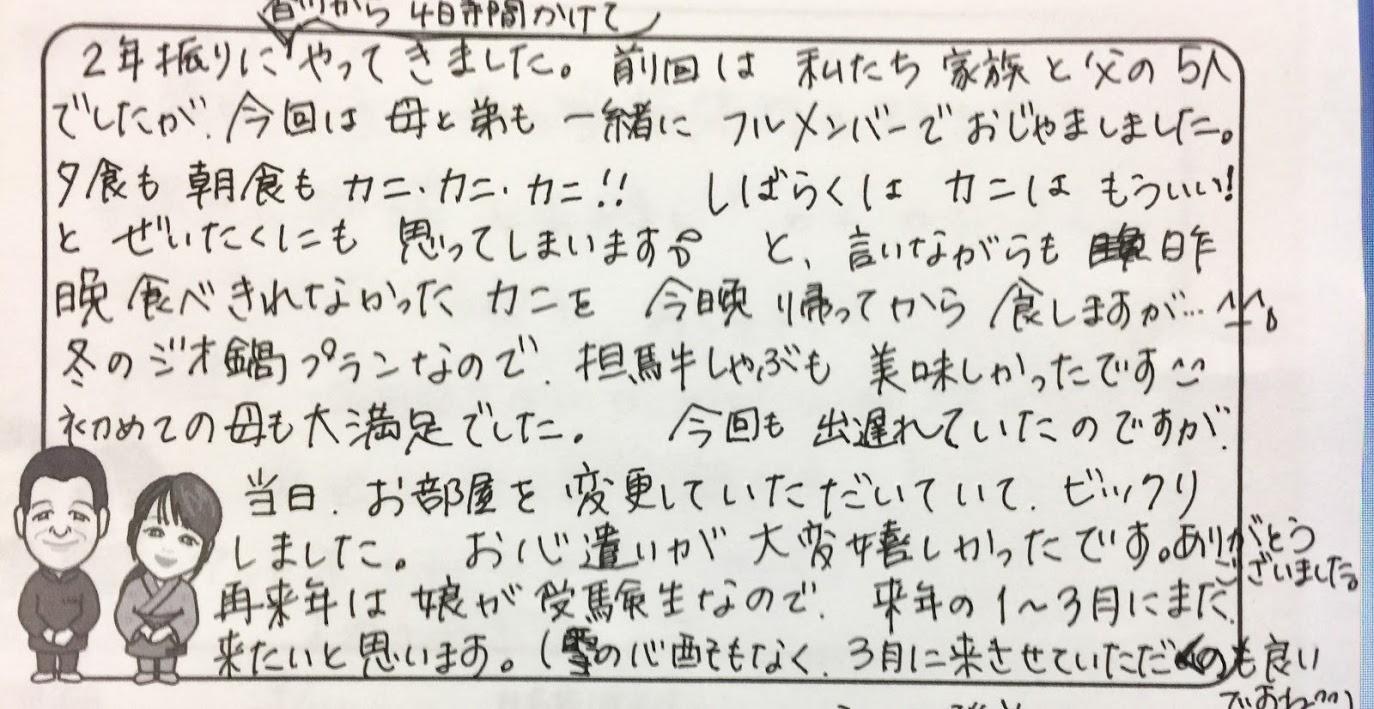 香川から 4日時間かけて
2年振りにやってきました。前回は 私たち 家族と父の5人
でしたが、今回は 母と弟も 一緒に フルメンバーでおじゃましました。
夕食も 朝食も カニ・カニ・カニ!! しばらくは カニは もういい!
と ぜいたくにも 思ってしまいます。 と、言いながらも 昨
晩 食べきれなかった カニを 今晩 帰ってから 食しますが…^^;
冬のジオ鍋プランなので、担馬牛しゃぶも 美味しかったです
初めての母も大満足でした。 今回も 出遅れていたのですが、
当日、お部屋を 変更していただいていて、ビックリ
しました。 お心遣いが 大変嬉しかったです。ありがとう
ございました。
再来年は 娘が 受験生なので、来年の 1〜3月にまた
来たいと思います。(雪の心配もなく、3月に来させていただくのも良い
ですね^^)